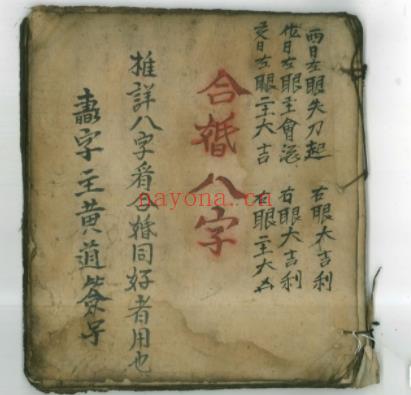 酉日左眼失刀起 右眼大吉利
左眼主會 右眼大吉利
左眼主大吉 右眼主大凶
合婚八字
推詳八字看合婚同好者用也
字主黄道
nayona.cn